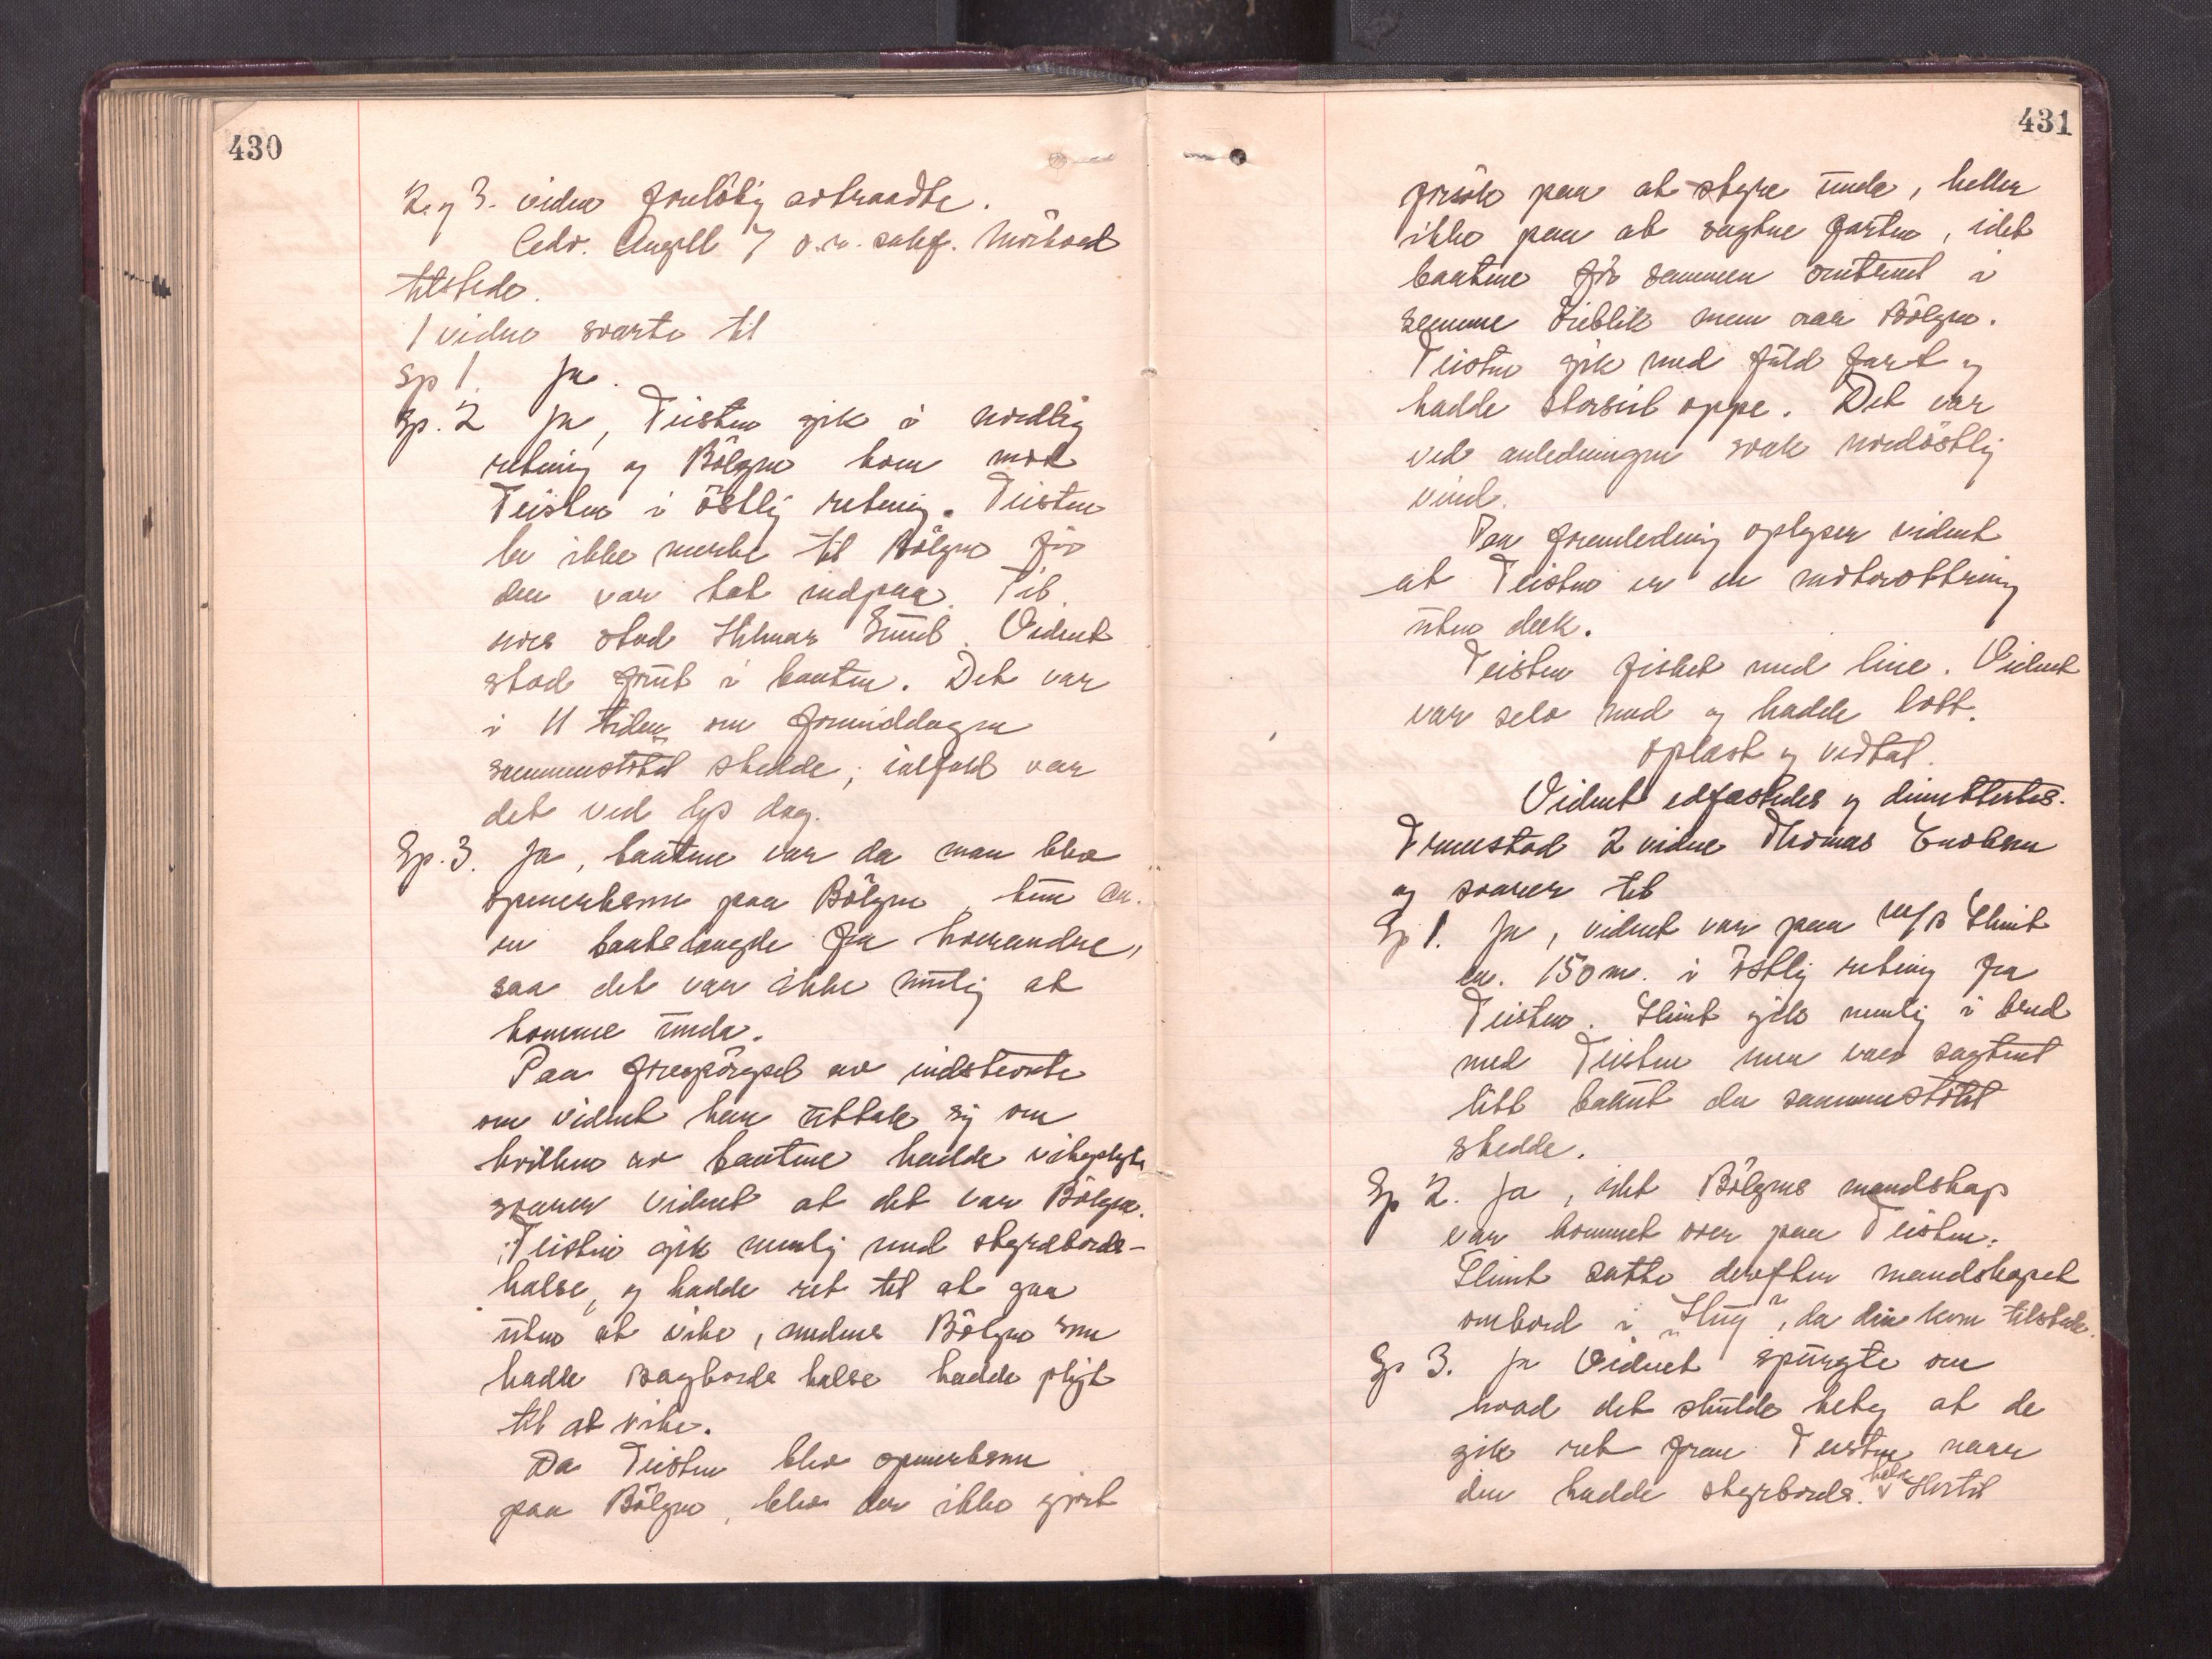 430
2. og 3. vidne foreløbig avtraadte.
Adv. Angell 7 o.r. sakf. Mörkved
tilstede.
1 vidne svarte til
Sp 1. Ja.
Sp. 2 Ja, Teisten gik i nordlig
retning og Bölgen kom mot
Teisten i östlig retning. Teisten
la ikke merke til Bölgen för
den var tæt indpaa. Til
rors stod Hilmar . Vidnet
stod forut i baaten. Det var
i 11 tiden om formiddagen
sammenstötet skedde; ialfald var
det ved lys dag.
Sp. 3. Ja, baatene var da man blev
opmerksom paa Bölgen, kun ca.
en baatslængde fra hverandre,
saa det var ikke mulig at
komme unda.
Paa forespörgsel av indstevnte
om vidnet kan uttale sig om
hvilken av baatene hadde vikeplikt
svarer vidnet at det var Bölgen.
Teisten gik nemlig med styrebords-
halse, og hadde ret til at gaa
uten at vike, medens Bölgen som
hadde bagbords halse hadde pligt
til at vike.
Da Teisten blev opmerksom
paa Bölgen, blev der ikke gjort
431
forsök paa at styre unde, heller
ikke paa at sagtne farten, idet
baatene för sammen omtrent i
samme öieblik man saa Bölgen.
Teisten gik med fuld fart og
hadde storseil oppe. Det var
ved anledningen svak nordöstlig
vind.
Paa foranledning oplyser vidnet
at Teisten er en motorottring
uten dæk.
Teisten fisket med line. Vidnet
var selv med og hadde lott.
Oplæst og vedtat.
Vidnet edfæstedes og dimittertes.
Fremstod 2 vidne Thomas Enoksen
og svarer til
Sp 1. Ja, vidnet var paa m/s Glimt
ca. 150 m. i östlig retning fra
Teisten. Glimt gik nemlig i bred
med Teisten men var sagtnet
litt bakut da sammenstötet
skedde.
Sp 2. Ja, idet Bölgens mandskap
var kommet over paa Teisten.
Glimt satte derefter mandskapet
ombord i "Hug", da den kom tilstede.
Sp 3. Ja Vidnet spurgte om
hvad det skulde bety at de
gik ret fram Teisten naar
den hadde styrbords halse Hertil